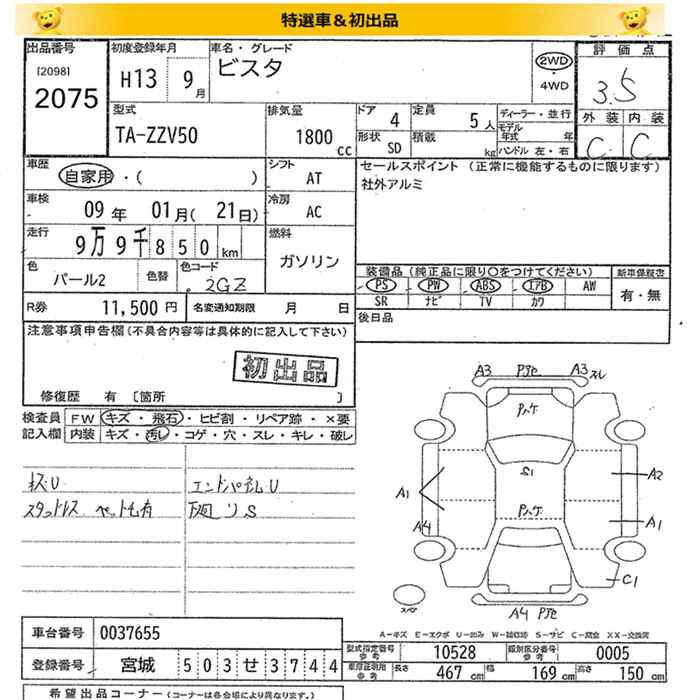 特選車＆初出品
出品番号 初度登録年月 車名・グレード 評価点
[2098] H13 9月 ビスタ 2WD・4WD 3.5
2075
型式 排気量 ドア 4 定員 5人 ディーラー・並行 外装 内装
TA-ZZV50 1800cc 形状 SD 積載 kg モデル年式 年 C C
ハンドル 左・右
車歴 自家用・( ) シフト AT セールスポイント (正常に機能するものに限ります)
社外アルミ
車検 09年 01月(21日) 冷房 AC
走行 9万9千850km 燃料 ガソリン
色 パール2 色替 色コード 2GZ
装備品(純正品に限り○をつけてください) 新車保証書
PS PW ABS エアB AW 有・無
SR ナビ TV カワ
R券 11,500円 名変通知期限 月 日
後日品
注意事項申告欄(不具合内容等は具体的に記入して下さい)
初出品
修復歴 有 [箇所 ]
検査員 FW キズ・飛石・ヒビ割・リペア跡・×要
記入欄 内装 キズ・汚レ・コゲ・穴・スレ・キレ・破レ
A3 A3スレ
S1
A1 A2
A4 A1
C1
A4
A-キズ E-エクボ U-凹み W-補修跡 S-サビ C-腐食 XX-交換済
車台番号 0037655
型式指定番号 参考 10528 類別区分番号 参考 0005
登録番号 宮城 503せ3744
車庫証明用 参考 長さ 467cm 幅 169cm 高さ 150cm
希望出品コーナー(コーナーは各会場により異なります。)